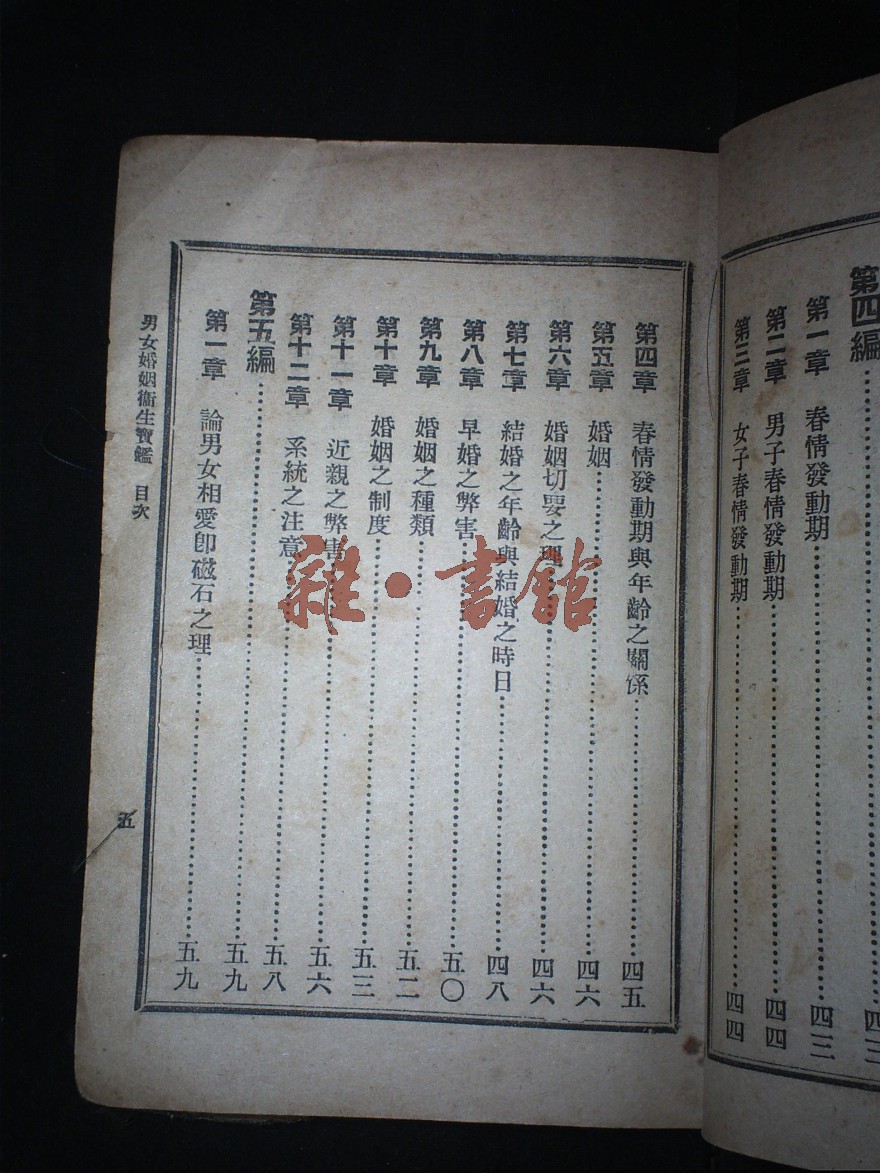 第四編……四三
第一章 春情發動期……四三
第二章 男子春情發動期……四四
第三章 女子春情發動期……四四
第四章 春情發動期與年齡之關係……四五
第五章 婚姻……四六
第六章 婚姻切要之理……四六
第七章 結婚之年齡與結婚之時日……四八
第八章 早婚之弊害……五〇
第九章 婚姻之種類……五二
第十章 婚姻之制度……五三
第十一章 近親之弊害……五六
第十二章 系統之注意……五八
第五編……五九
第一章 論男女相愛卽磁石之理……五九
男女婚姻衞生寶鑑 目次
五
雜·書館